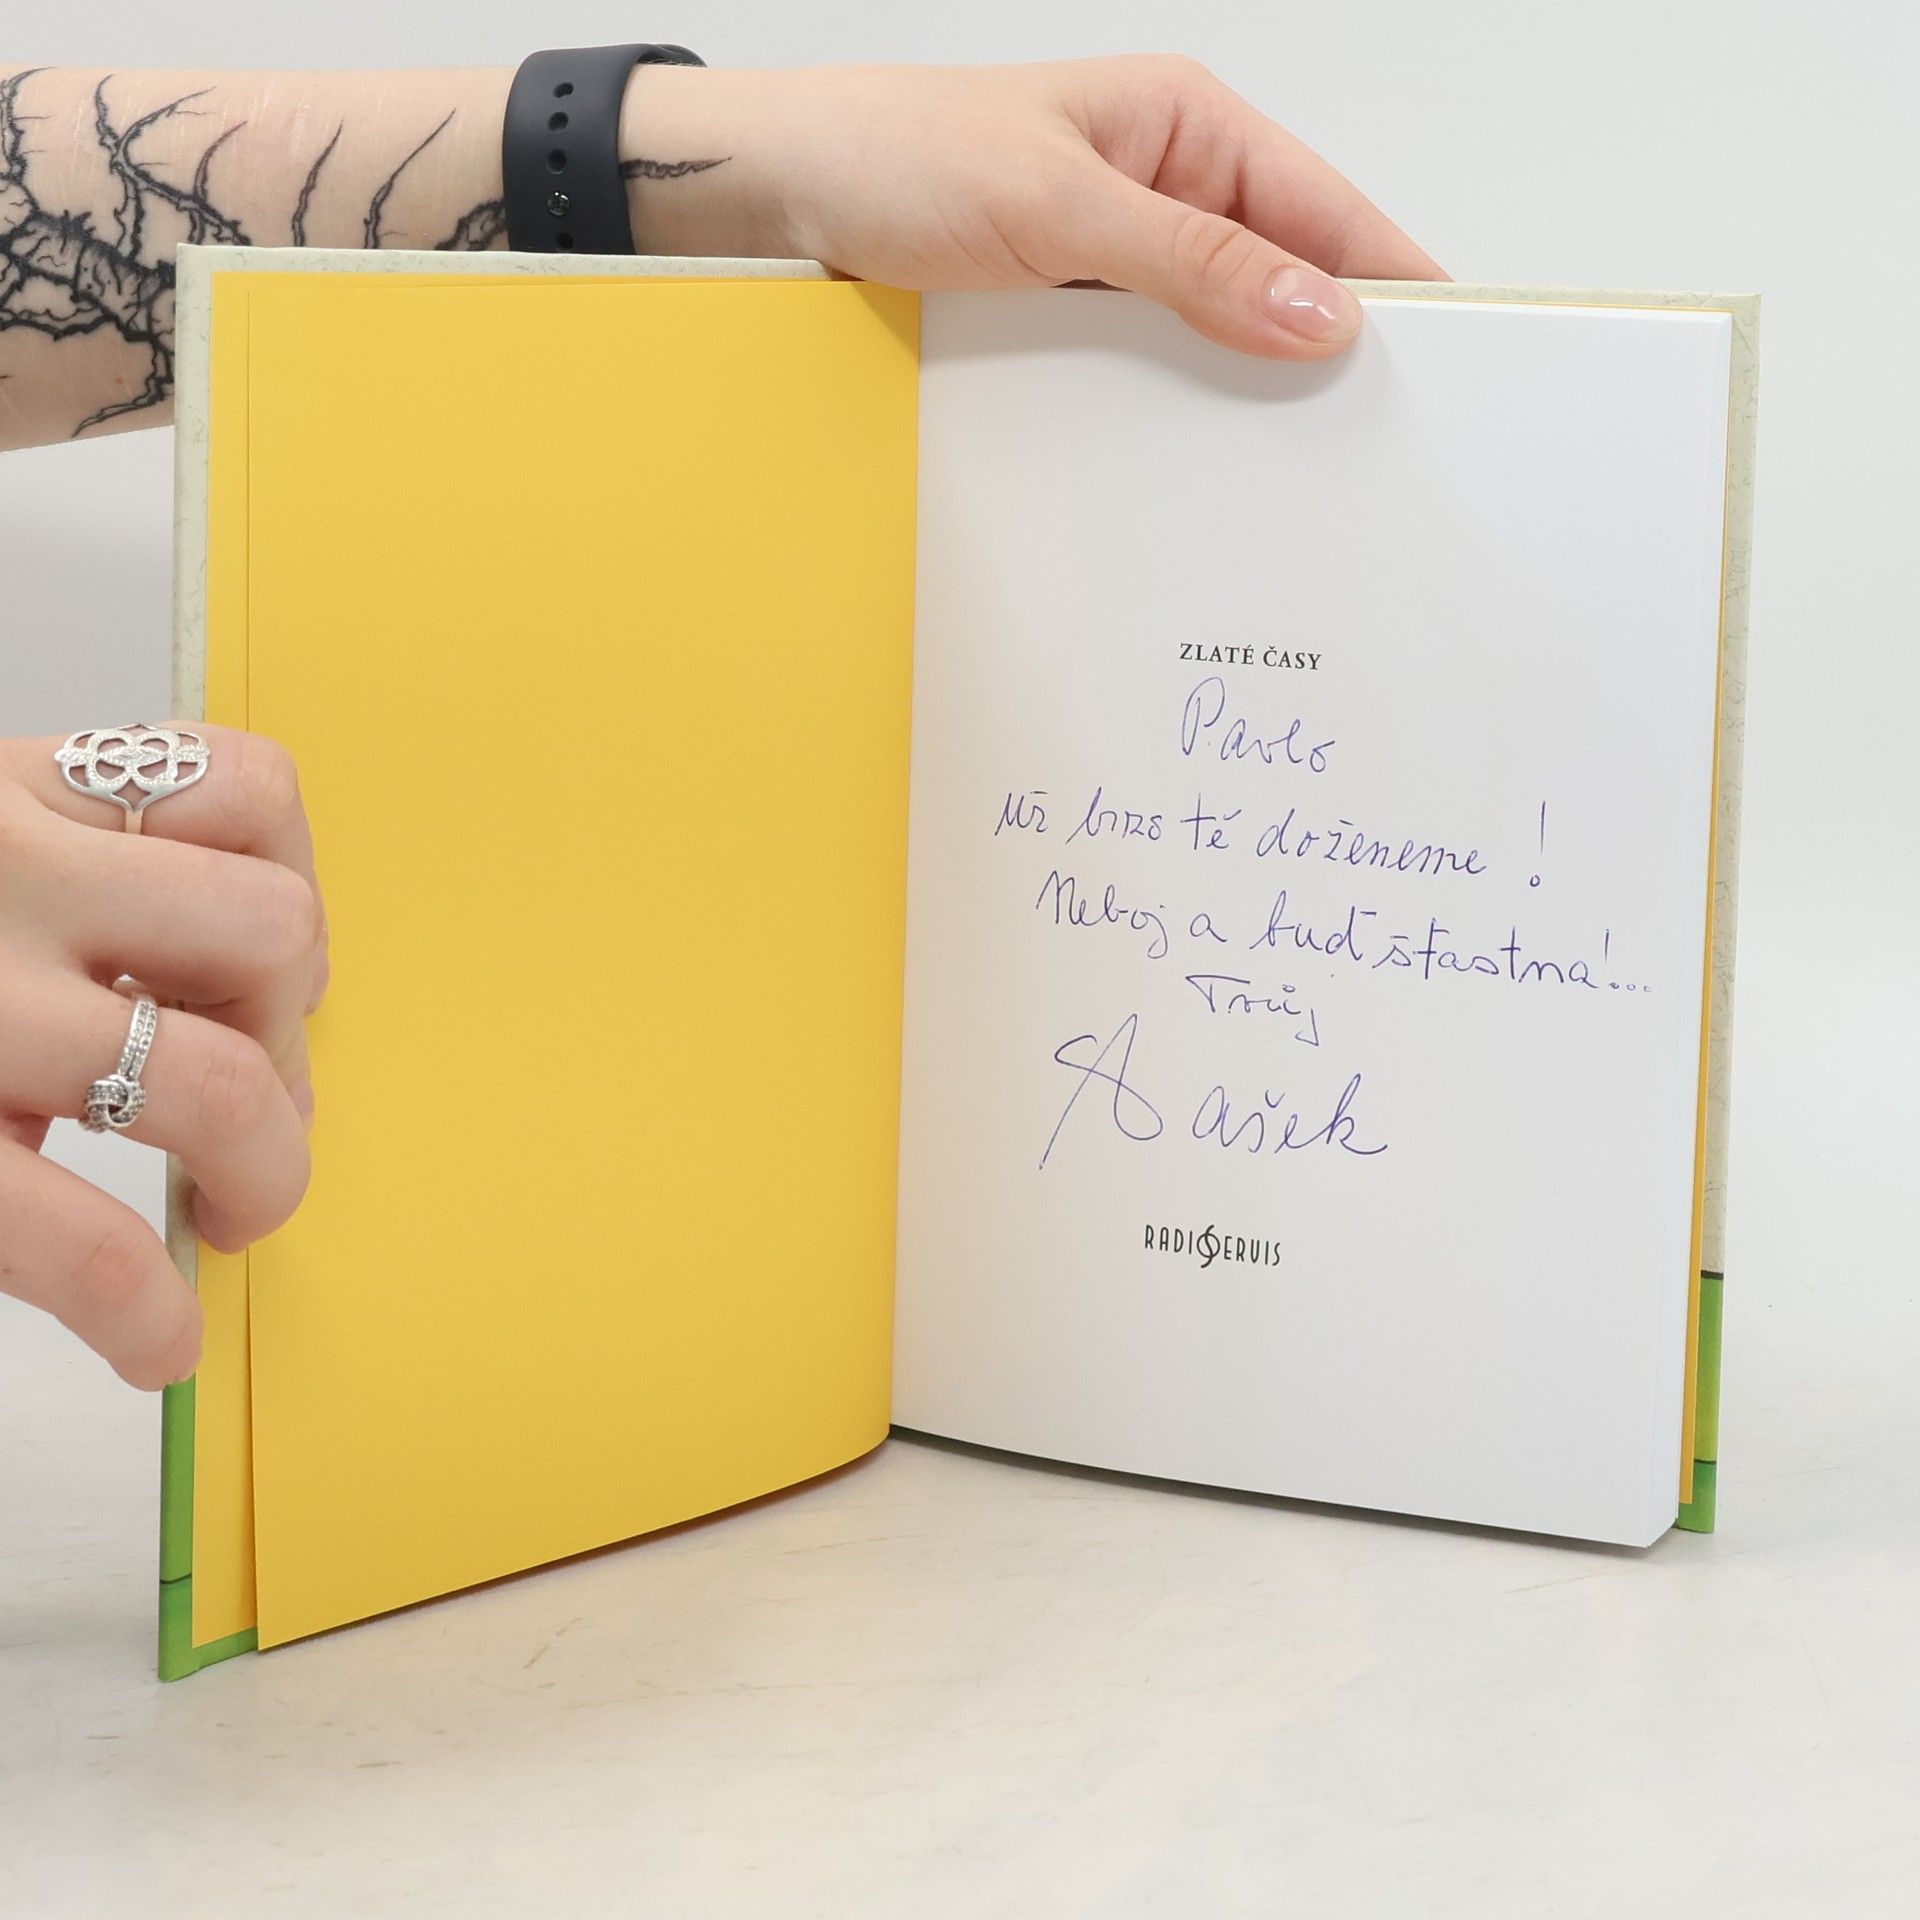 ZLATÉ ČASY
Pavlo
Už brzo tě doženeme !
Neboj a buď šťastna!...
Tvůj
Vašek
RADIOSERVIS